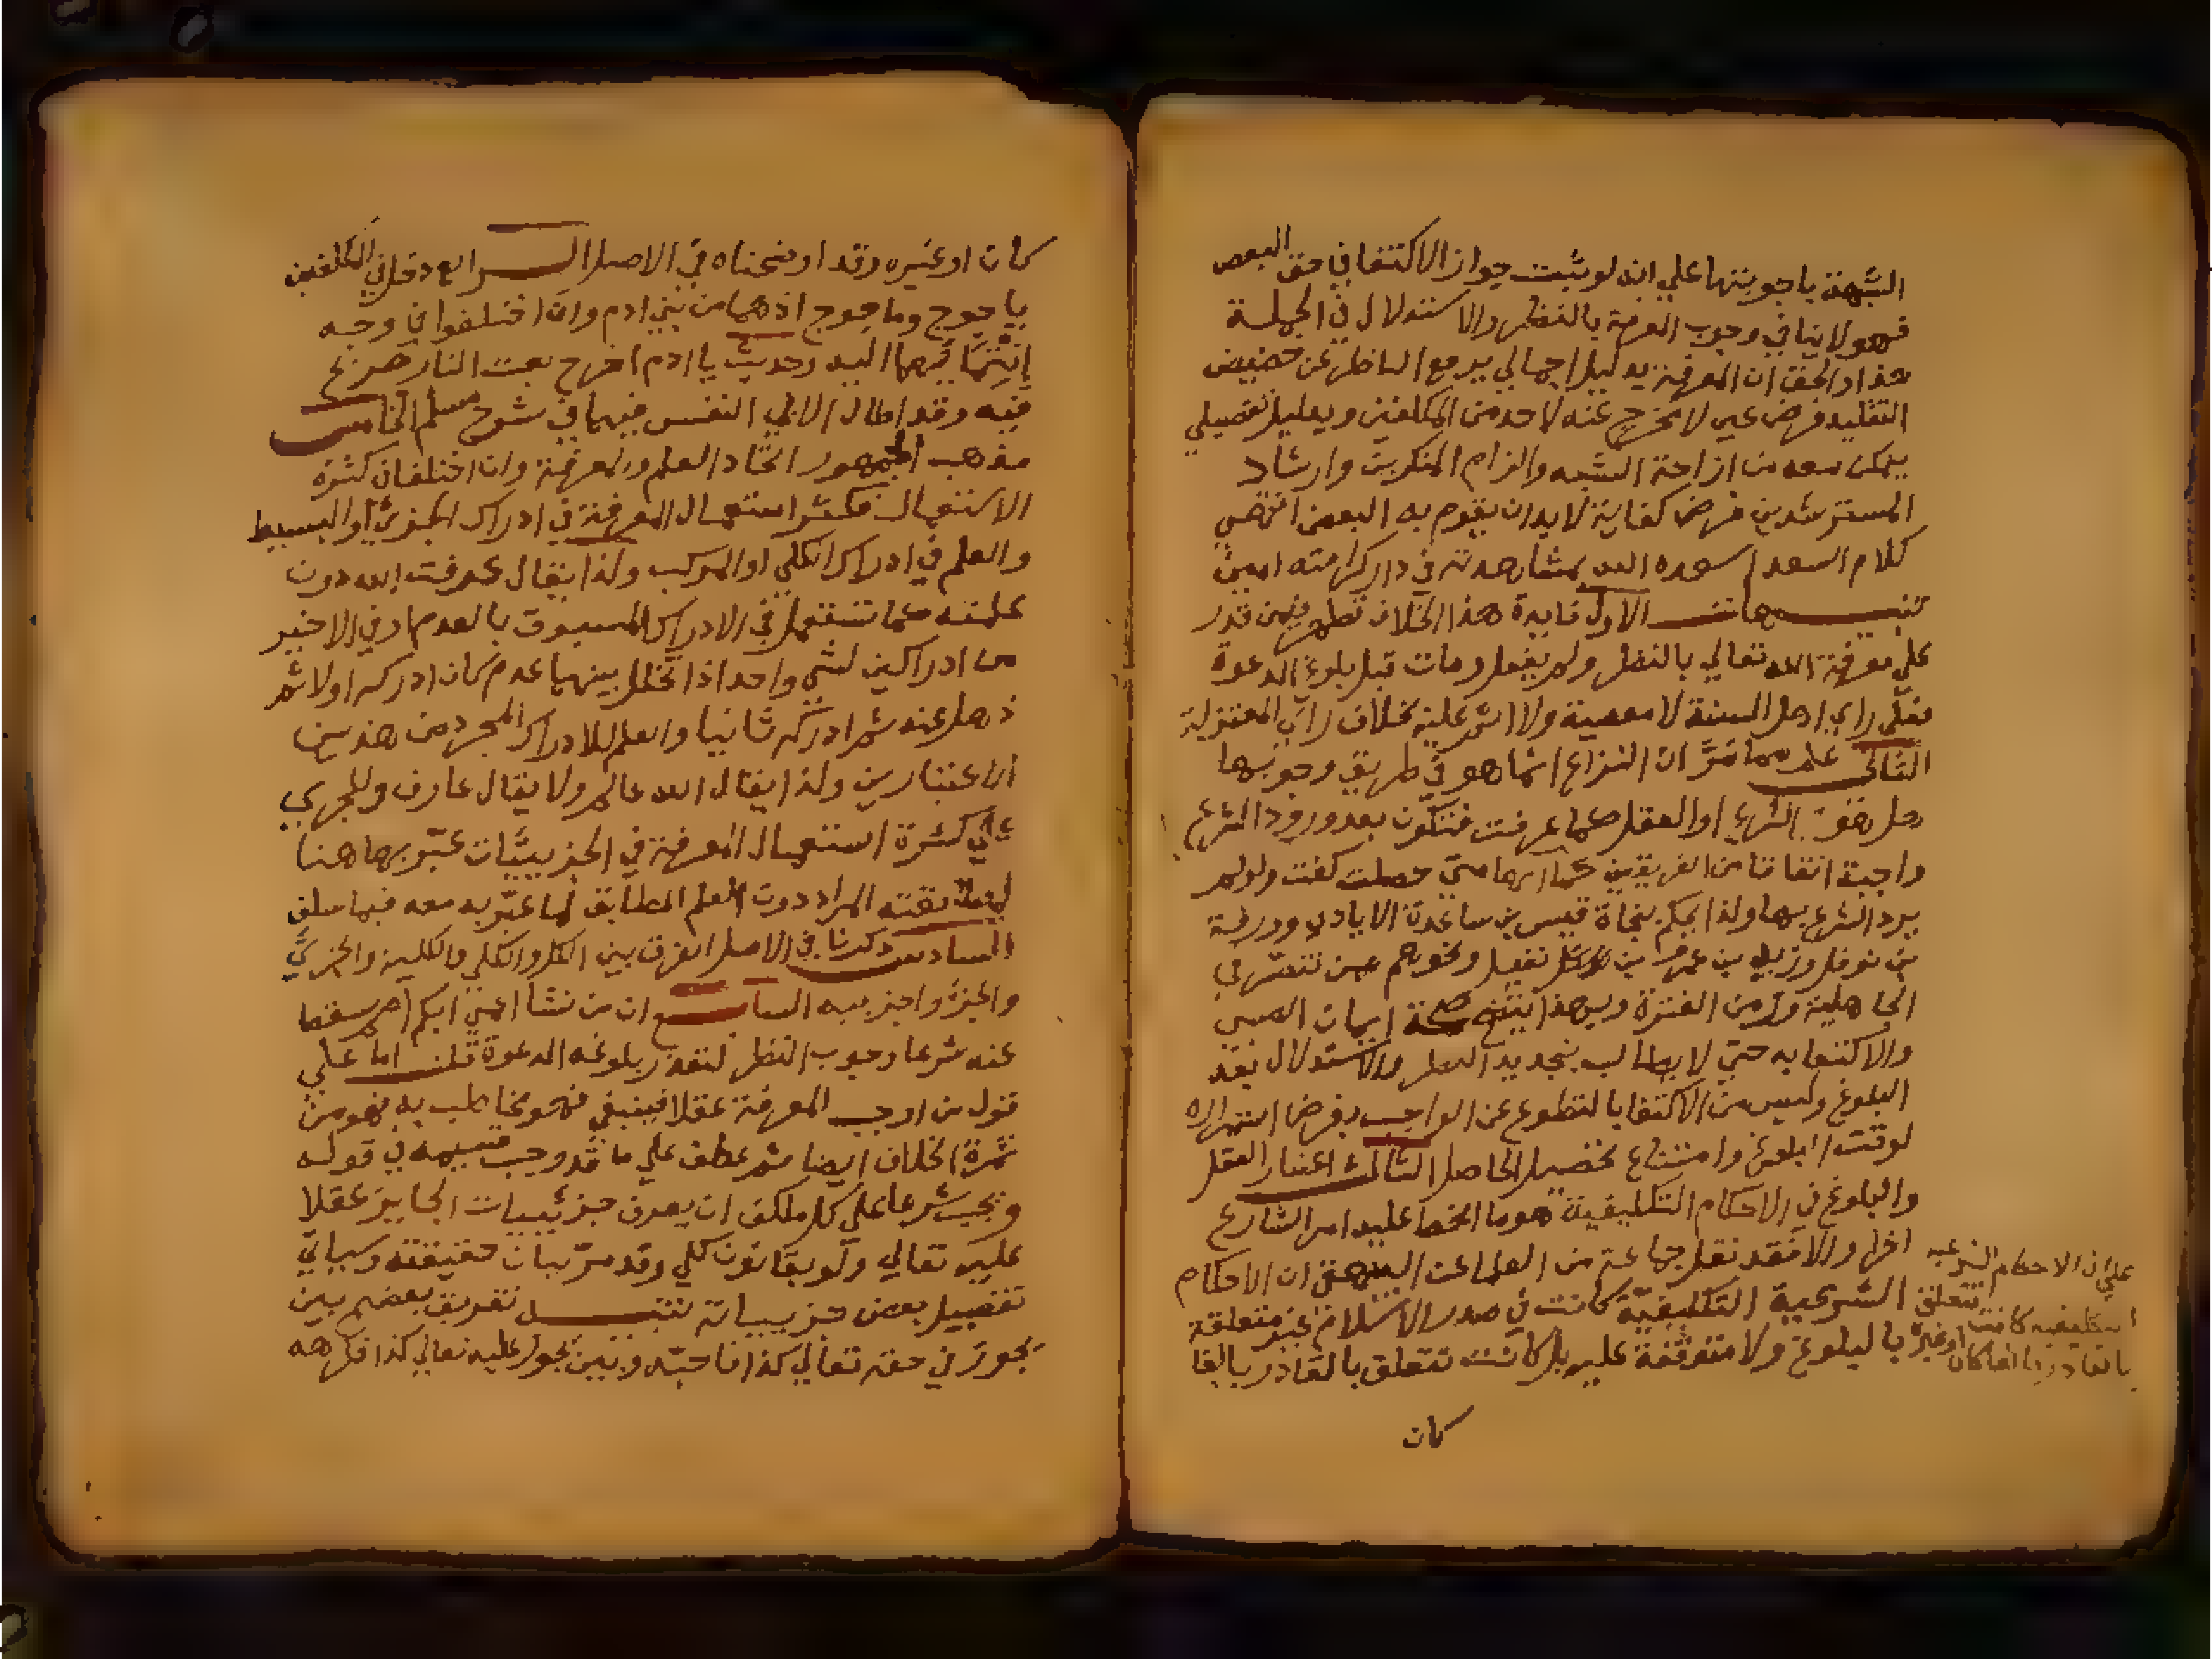 الشبهة باجوبتها علي انه لو ثبت جواز الاكتفا في حق البعض
فهو لا ينافي وجوب المعرفة بالنظر والاستدلال في الجملة
هذا والحق ان المعرفة بدليل اجمالي يرفع الناظر عن حضيض
التقليد فرض عين لا مخرج عنه لاحد من المكلفين وبدليل تفصيلي
يمكن معه من ازاحة الشبه والزام المنكرين وارشاد
المسترشدين فرض كفاية لا بد ان يقوم به البعض انتهى
كلام السعد اسعده الله بمشاهدته في دار كرامته امين
تنبيهات الاول فايدة هذا الخلاف تظهر فيمن قدر
علي معرفة الله تعالي بالنظر ولم يفعل ومات قبل بلوغ الدعوة
فعلي راي اهل السنة لا معصية ولا اثم عليه بخلاف راي المعتزلة
الثاني علم مما مر ان النزاع انما هو في طريق وجوبها
هل هو الشرع او العقل كما عرفت فتكون بعد ورود الشرع
واجبة اتفاقا من الفريقين كما انها متي حصلت كفت ولو لم
يرد الشرع بها ولذا يحكم بنجاة قيس بن ساعدة الايادي وورقة
بن نوفل وزيد بن عمرو بن نفيل ونحوهم ممن تبصر في
الجاهلية وزمن الفترة وبهذا يتضح صحة ايمان الصبي
والاكتفا به حتي لا يطالب بتجديد النظر والاستدلال بعد
البلوغ وليس من الاكتفا بالتطوع عن الواجب بفرض استمراره
لوقت البلوغ وامتناع تحصيل الحاصل الثالث اعتبار العقل
والبلوغ في الاحكام التكليفية هو ما انحط عليه امر الشارع
اخرا والا فقد نقل جماعة من العلما عن البيهقي ان الاحكام
الشرعية التكليفية كانت في صدر الاسلام غير متعلقة
بالبلوغ ولا متوقفة عليه بل كانت تتعلق بالقادر بالغا
علي ان الاحكام الشرعيه
التكليفيه كانت تتعلق
بالقادر بالغا كان او غيره
كان
كان او غيره وقد اوضحناه في الاصل الرابع دخل في المكلفين
ياجوج وماجوج اذ هما من بني ادم وان اختلفوا في وجه
انتمايهما اليه وحديث يا ادم اخرج بعث النار صريح
فيه وقد اطال الابي النفس فيهما في شرح مسلم الخامس
مذهب الجمهور اتحاد العلم والمعرفة وان اختلفا في كثرة
الاستعمال فكثر استعمال المعرفة في ادراك الجزئي او البسيط
والعلم في ادراك الكلي او المركب ولذا يقال عرفت الله دون
علمته كما تستعمل في الادراك المسبوق بالعدم او في الاخير
من ادراكين لشي واحد اذا تخلل بينهما عدم كان ادركه اولا ثم
ذهل عنه ثم ادركه ثانيا والعلم للادراك المجرد من هذين
الاعتبارين ولذا يقال الله عالم ولا يقال عارف وللجري
علي كثرة استعمال المعرفة في الجزييات عبر بها هنا
المراد دون العلم المطابق لما عبر به معه فيما سلف
السادس ذكرنا في الاصل الفرق بين الكل والكلي والكلية والجزئي
والجزو والجزييه السابع ان من نشا اعمي ابكم اصم سقط
عنه شرعا وجوب النظر لتعذر بلوغه الدعوة قلت اما علي
قول من اوجب المعرفة عقلا فينبغي فهو مخاطب به فهو من
ثمرة الخلاف ايضا ثم عطف علي ما قد وجب قسيمه في قوله
ويجب شرعا علي كل مكلف ان يعرف جزئييات الجايز عقلا
عليه تعالي ولو بقانون كلي وقد مر بيان حقيقته وسياتي
تفصيل بعض جزيياته تنبيه تفريق بعضهم بين
يجوز في حقه تعالي كذا فاحبه وبين يجوز عليه تعالي كذا فكرهه